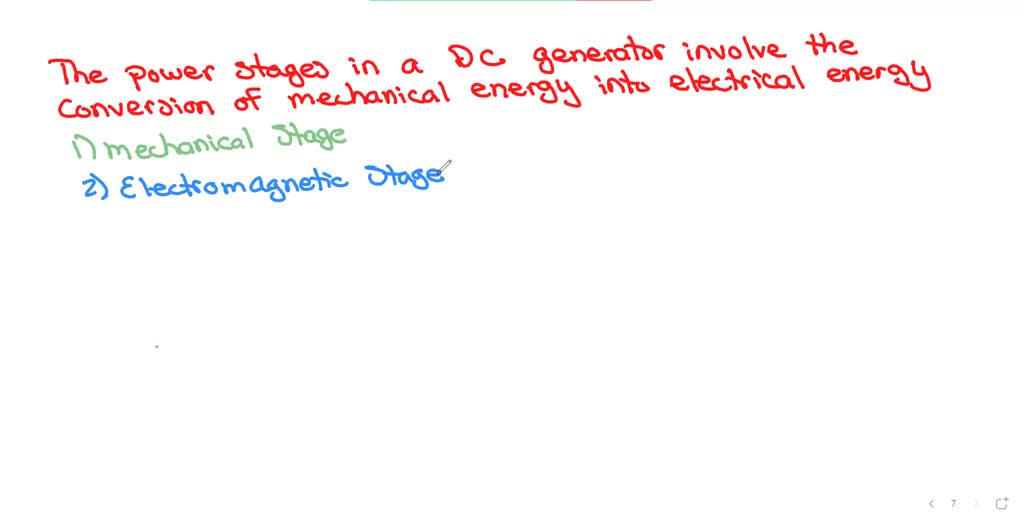 The power stages in a DC generator involve the
conversion of mechanical energy into electrical energy
1) mechanical Stage
2) Electromagnetic Stage
7